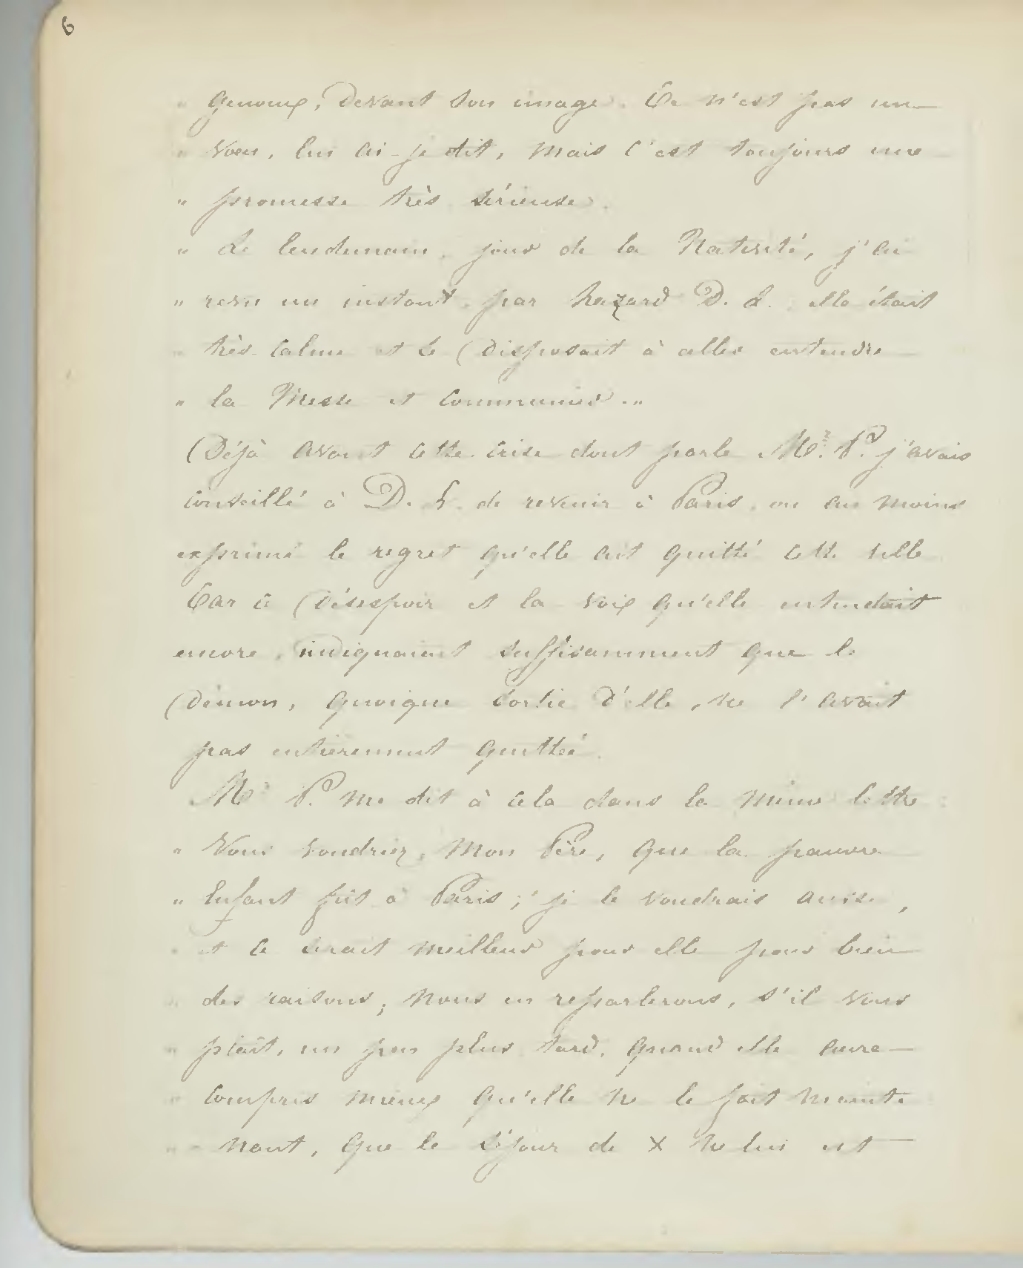 6
" genoux, devant son image. Ce n'est pas un
" voeu, lui ai-je dit, mais c'est toujours une
" promesse très sérieuse.
" Le lendemain, jour de la Nativité, j'ai
" revu un instant par hazard D. L. elle était
" très calme et se disposait à aller entendre
" la Messe et communier. "
Déjà avant cette crise dont parle Mr. P. j'avais
conseillé à D. L. de revenir à Paris, ou au moins
exprimé le regret qu'elle ait quitté cette ville
Car ce désespoir et la voix qu'elle entendait
encore, indiquaient suffisamment que le
démon, quoique sortie d'elle, ne l'avait
pas entièrement quittée.
Mr P. me dit à cela dans la même lettre :
" Vous voudriez, mon Père, que la pauvre
" Enfant fût à Paris ; je le voudrais aussi,
" et ce serait meilleur pour elle pour bien
" des raisons ; nous en reparlerons, s'il vous
" plait, un peu plus tard, quand elle aura
" compris mieux qu'elle ne le fait mainte
" - nant, que le séjour de X ne lui est